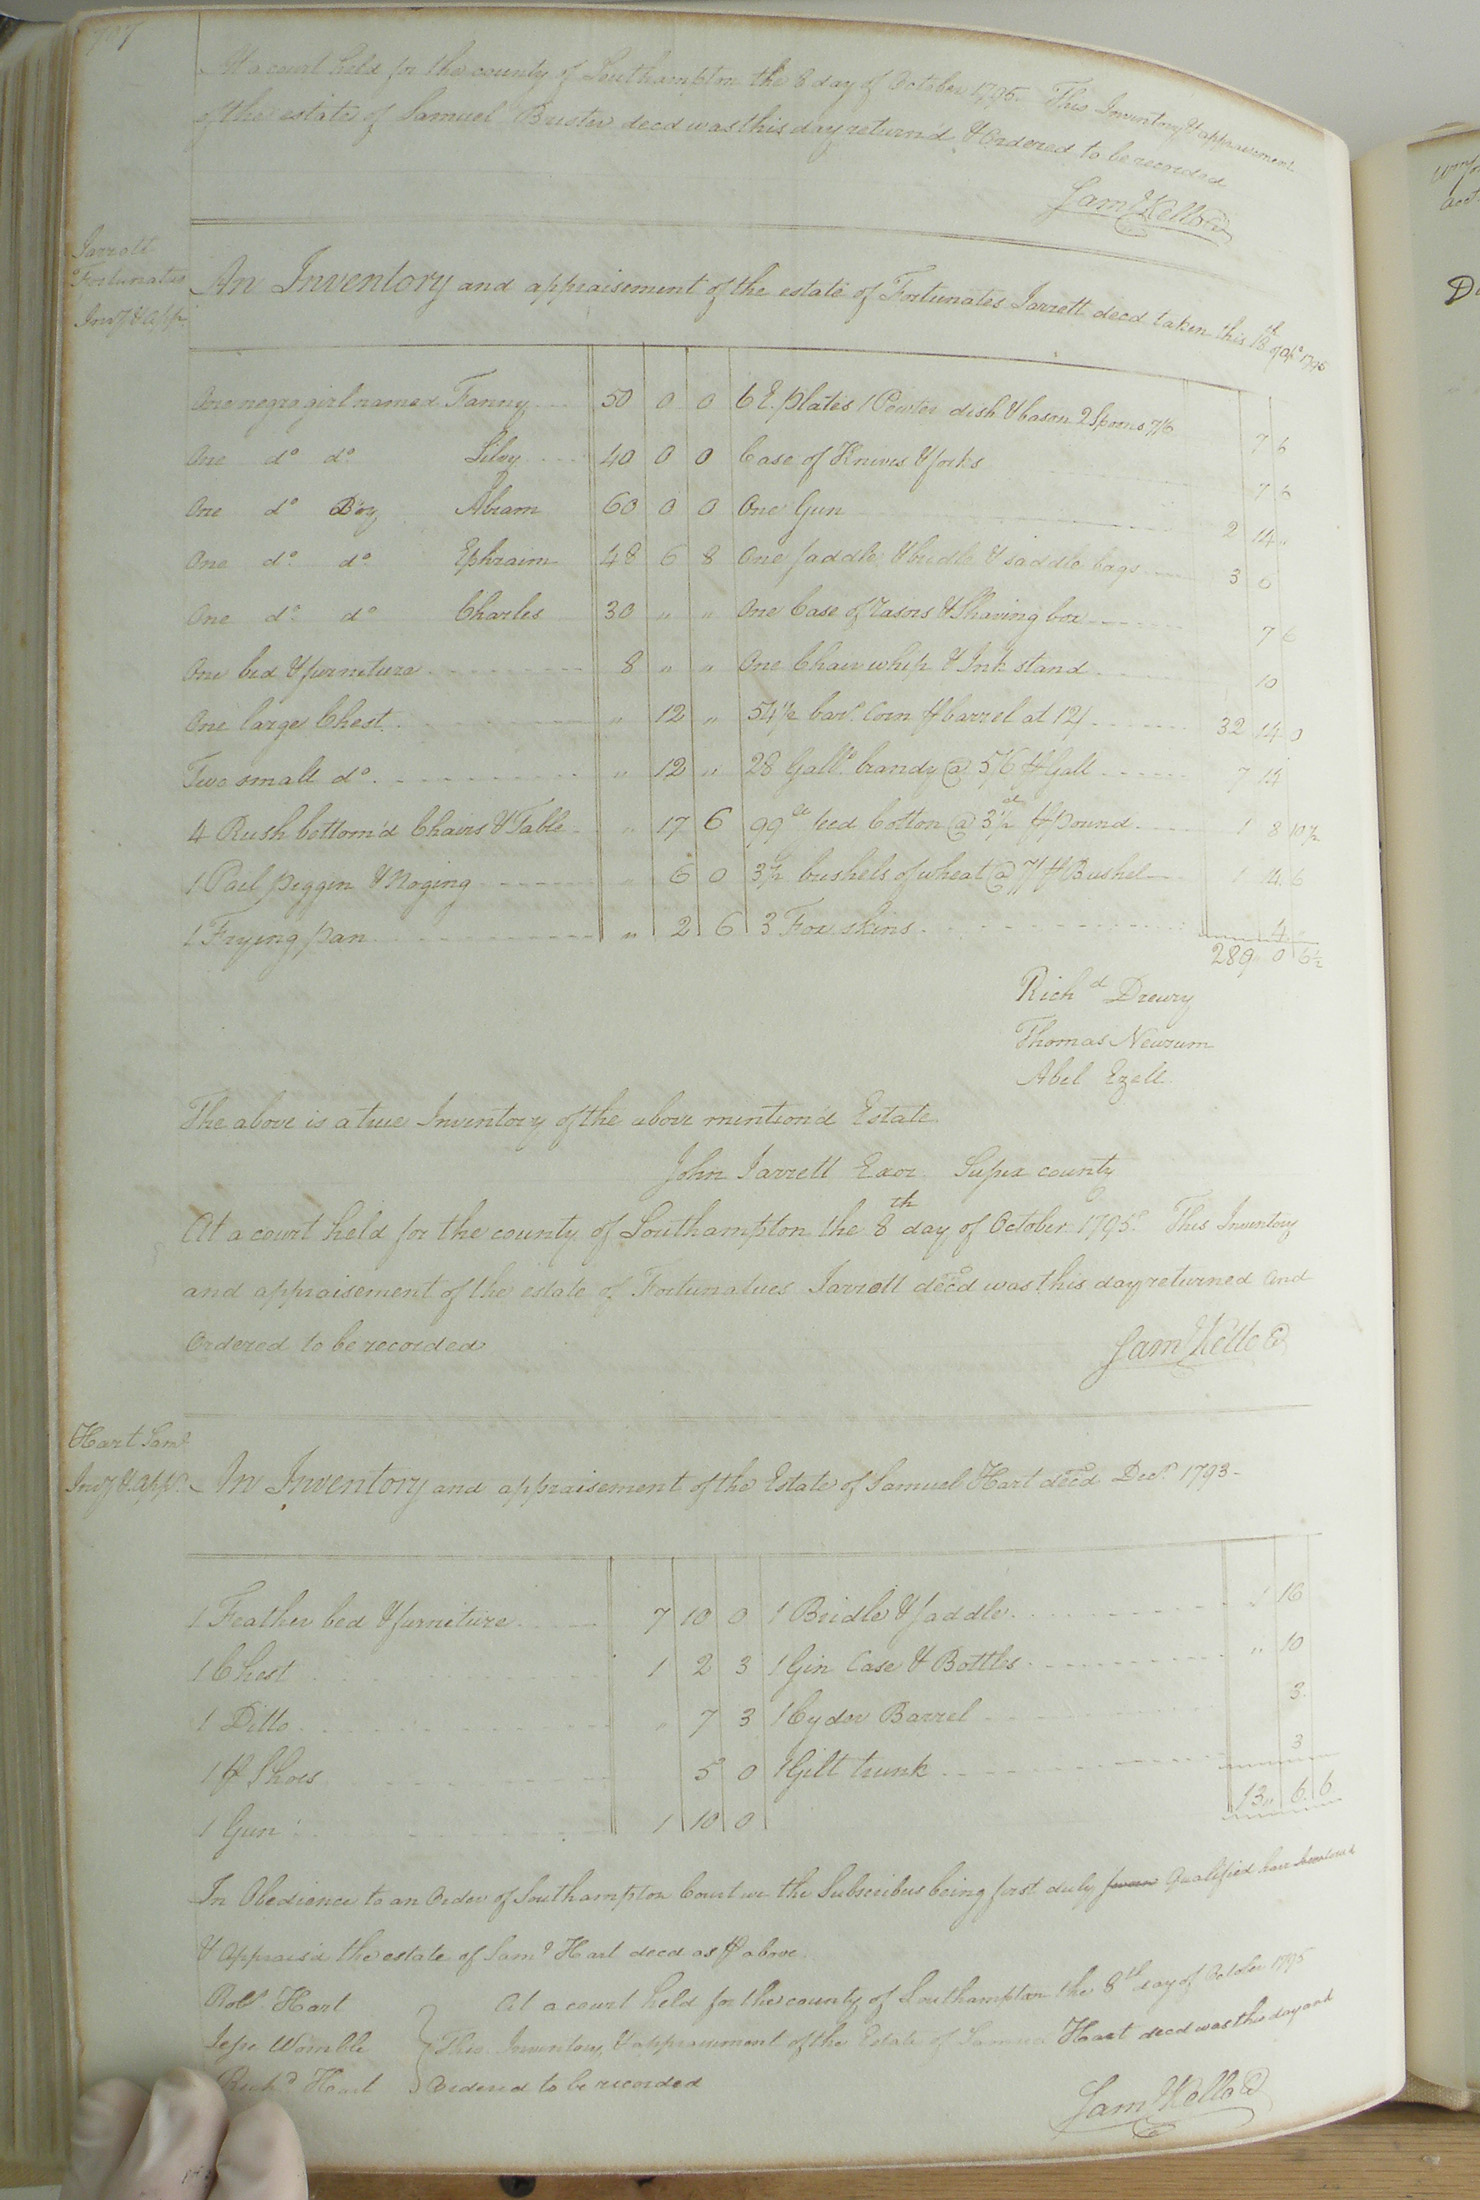 At a court held for the county of Southampton the 8 day of October 1795. This Inventory & appraisement
of the estate of Samuel Brister decd was this day return'd & Ordered to be recorded
Saml Kello
Jarrett
Fortunatus
Invy & App.
An Inventory and appraisement of the estate of Fortunates Jarrett decd taken this 18th of 1795
One negro girl named Fanny 50 0 0 6 E. plates 1 Pewter dish & bason 2 Spoons 7/6 7 6
One do do Silvy 40 0 0 Case of Knives & forks 7 6
One do Boy Abram 60 0 0 One Gun 2 14 "
One do do Ephraim 48 6 8 One saddle & bridle & saddle bags 3 0
One do do Charles 30 " " One Case of rasors & Shaving box 7 6
One bed & furniture 8 " " One Chair whip & Ink stand 10
One large Chest " 12 " 54½ barl. Corn ⅌ barrel at 12/ 32 14 0
Two small do. " 12 " 28 Galls. brandy @ 5/6 ⅌ Gall 7 14
4 Rush bottom'd Chairs & Table " 17 6 99 lb seed Cotton @ 3½d ⅌ Pound 1 8 10½
1 Pail piggin & Noging " 6 0 3½ bushels of wheat @ 7/ ⅌ Bushel 1 14 6
1 Frying pan " 2 6 3 Fox skins 4
289 0 6½
Richd Drewry
Thomas Newsum
Abel Ezell
The above is a true Inventory of the above mention'd Estate
John Jarrett Exor Sussex county
At a court held for the county of Southampton the 8th day of October 1795. This Inventory
and appraisement of the estate of Fortunatues Jarrett decd was this day returned and
Ordered to be recorded
Saml Kello
Hart Saml
Invy & app.
An Inventory and appraisement of the Estate of Samuel Hart decd Decr. 1793-
1 Feather bed & furniture 7 10 0 1 Bridle & saddle 1 16
1 Chest 1 2 3 1 Gin Case & Bottles " 10
1 Ditto " 7 3 1 Cyder Barrel 3
1 ⅌ Shoes 5 0 1 Gilt trunk 3
1 Gun 1 10 0
13 " 6 6
In Obedience to an Order of Southampton Court we the Subscribers being first duly sworn Qualified have
& Apprais'd the estate of Saml Hart decd as ⅌ above
Robt. Hart At a court held for the county of Southampton the 8th day of October 1795
Jesse Womble This Inventory & appraisement of the Estate of Samuel Hart decd was this day and
Richd Hart Ordered to be recorded
Saml Kello